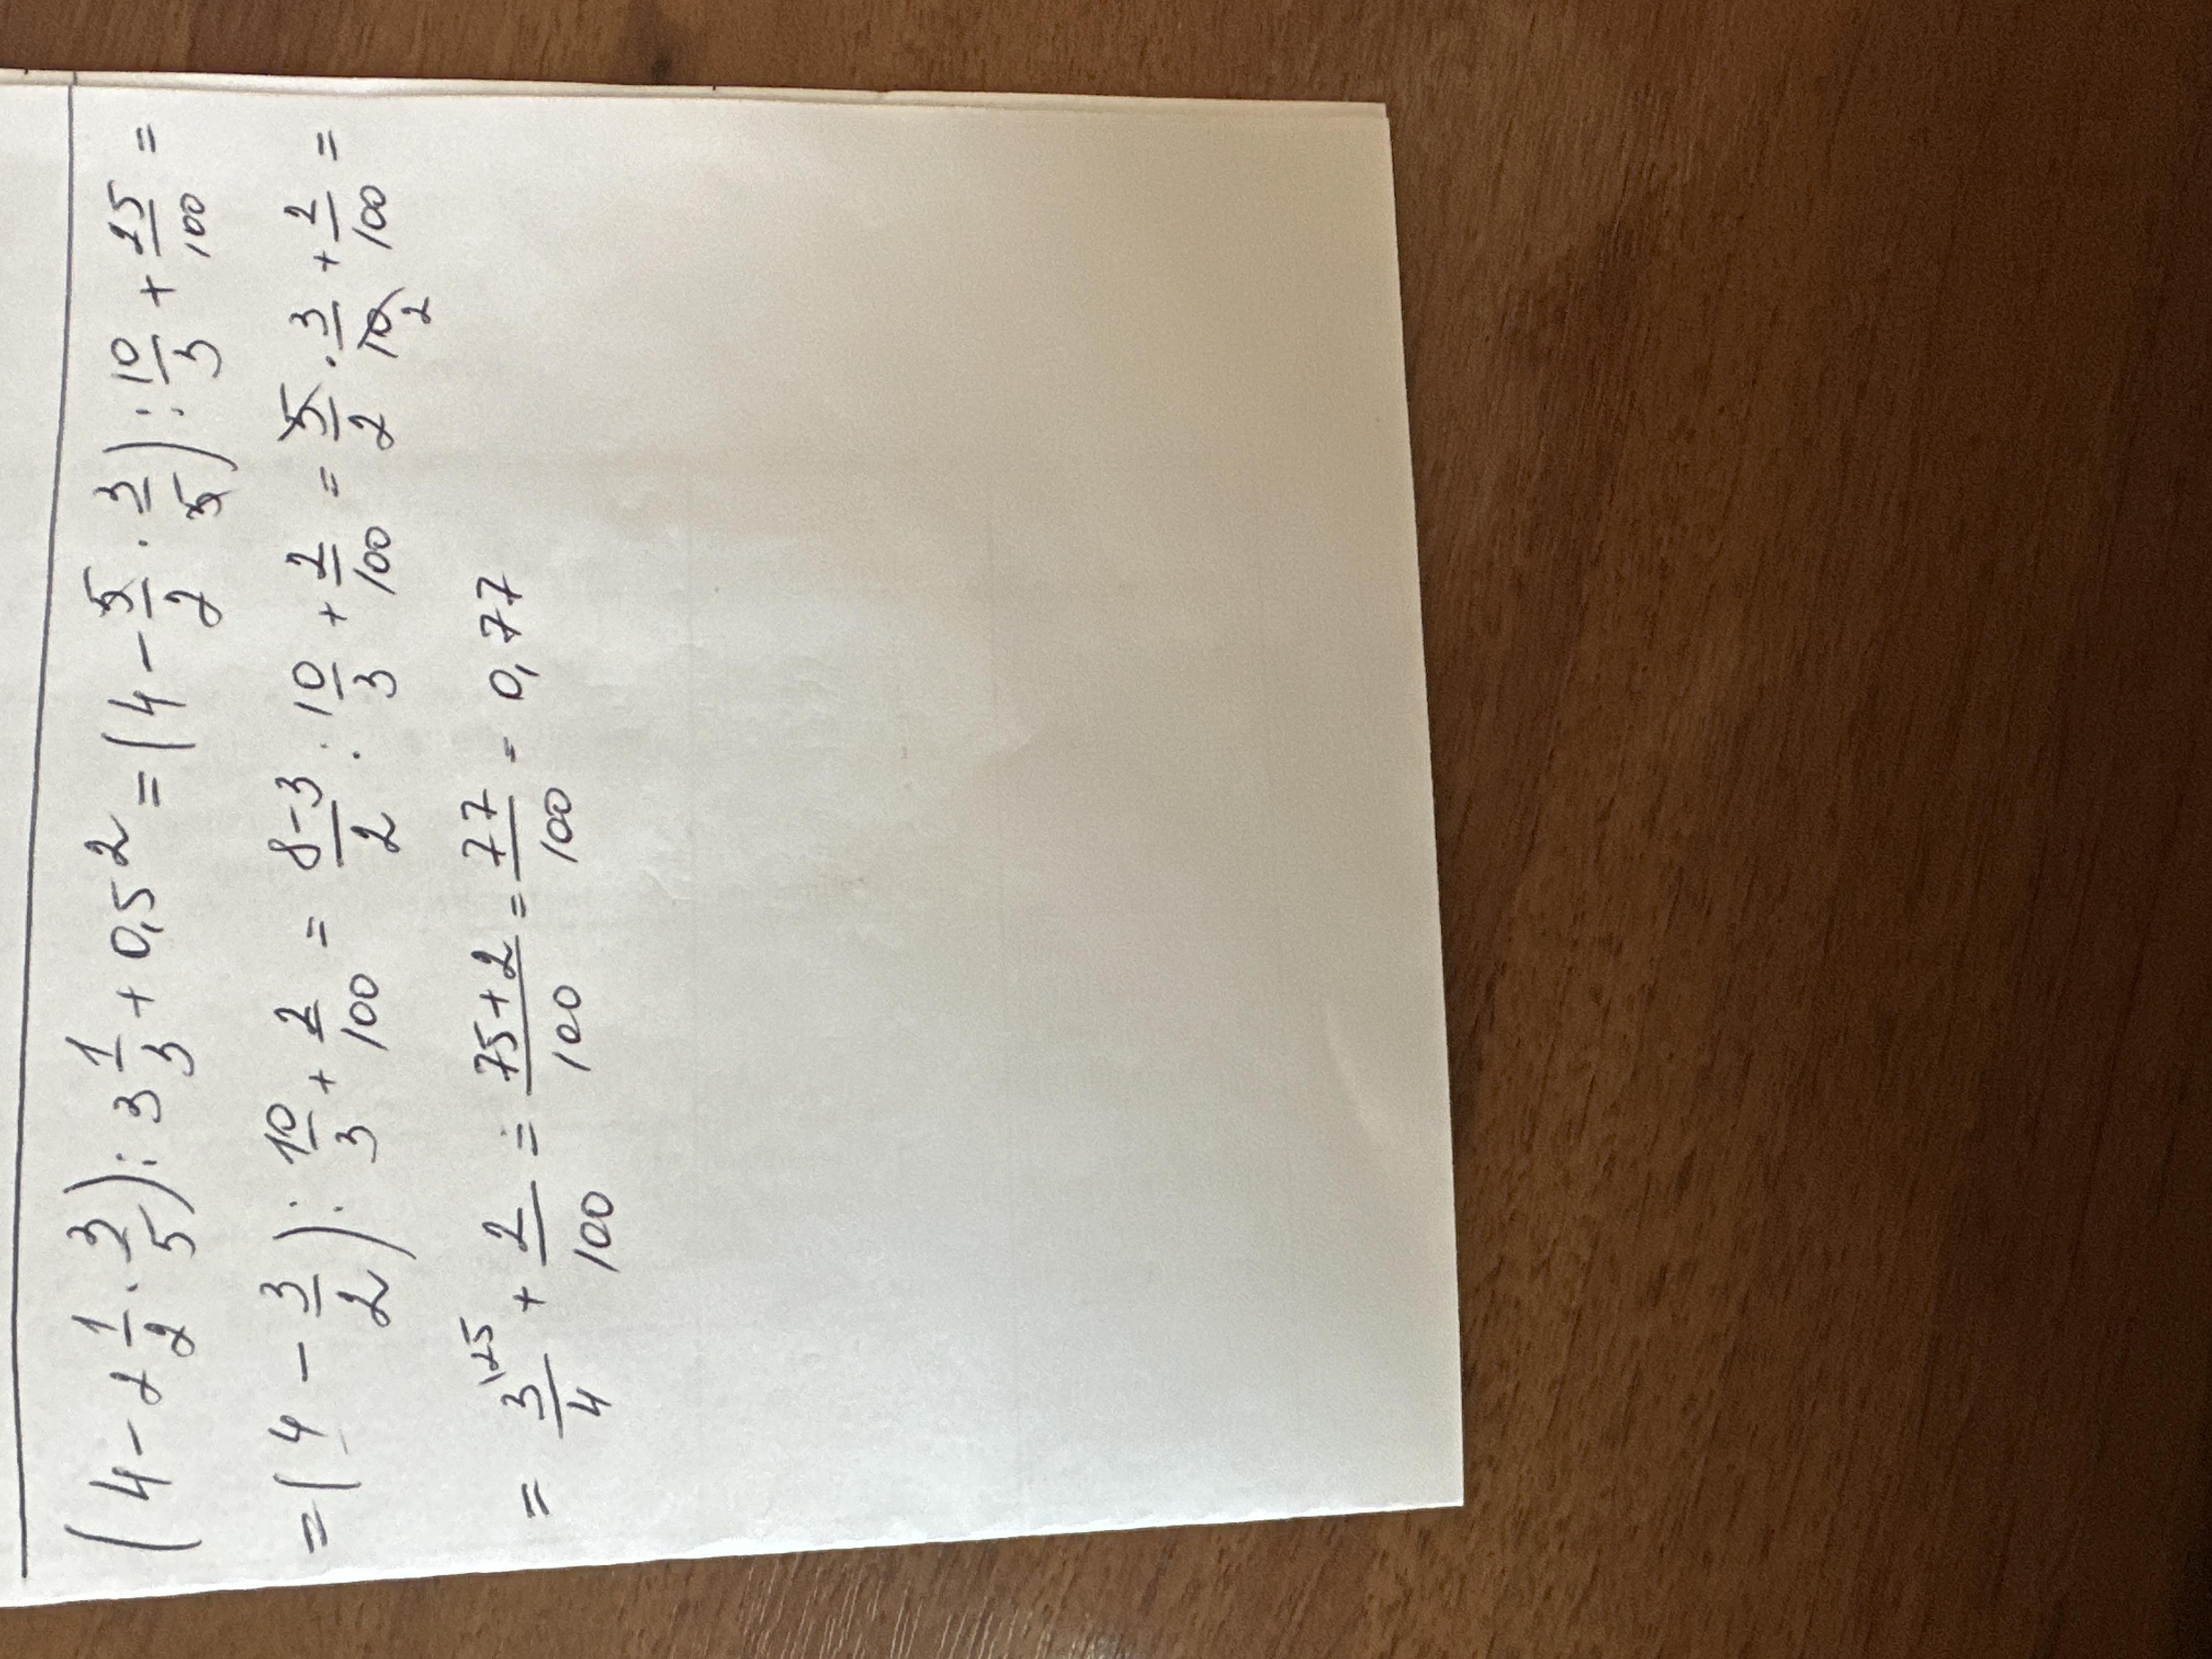 (4 - 2 1/2 · 3/5) : 3 1/3 + 0,5² = (4 - 5/2 · 3/5) : 10/3 + 25/100 =
= (4 - 3/2) : 10/3 + 2/100 = 8-3/2 : 10/3 + 2/100 = 5/2 · 3/10 2 + 2/100 =
= 3\25/4 + 2/100 = 75+2/100 = 77/100 = 0,77